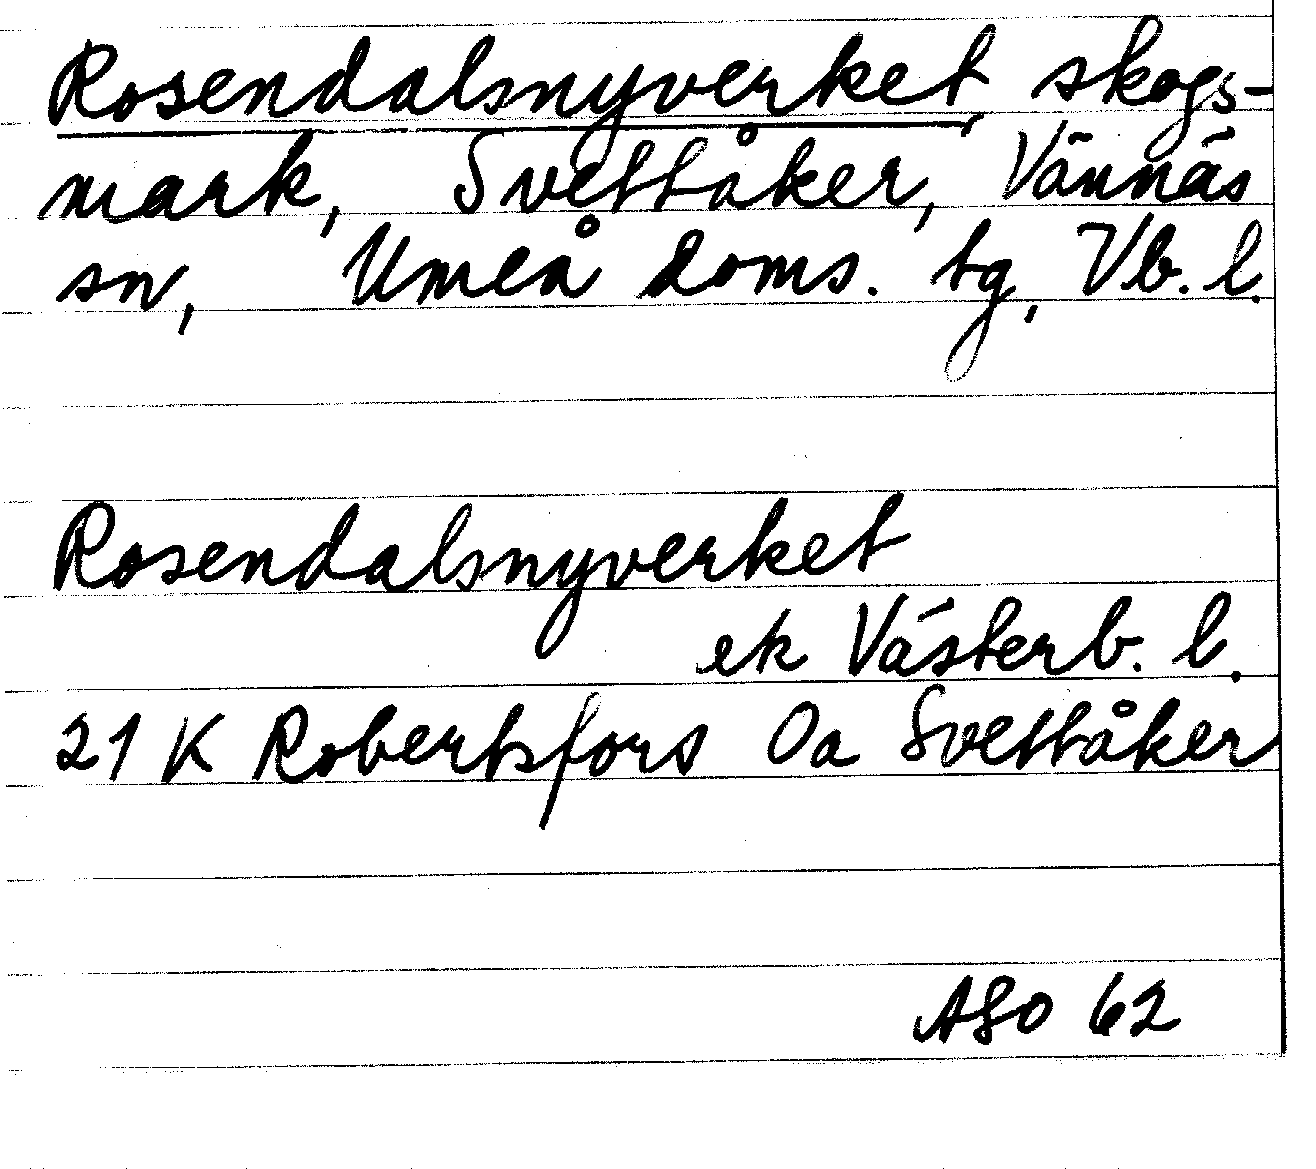 Rosendalsnyverket, skogs-
mark, Svettåker, Vännäs
sn, Umeå doms. tg, Vb. l.
Rosendalsnyverket
ek Västerb. l.
21 K Robertsfors Oa Svettåker
ASO 62